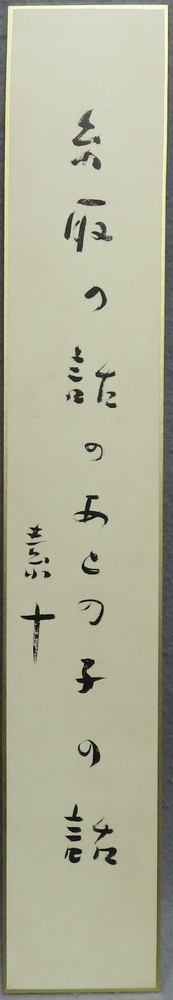 糸取の話のあとの子の話
素十